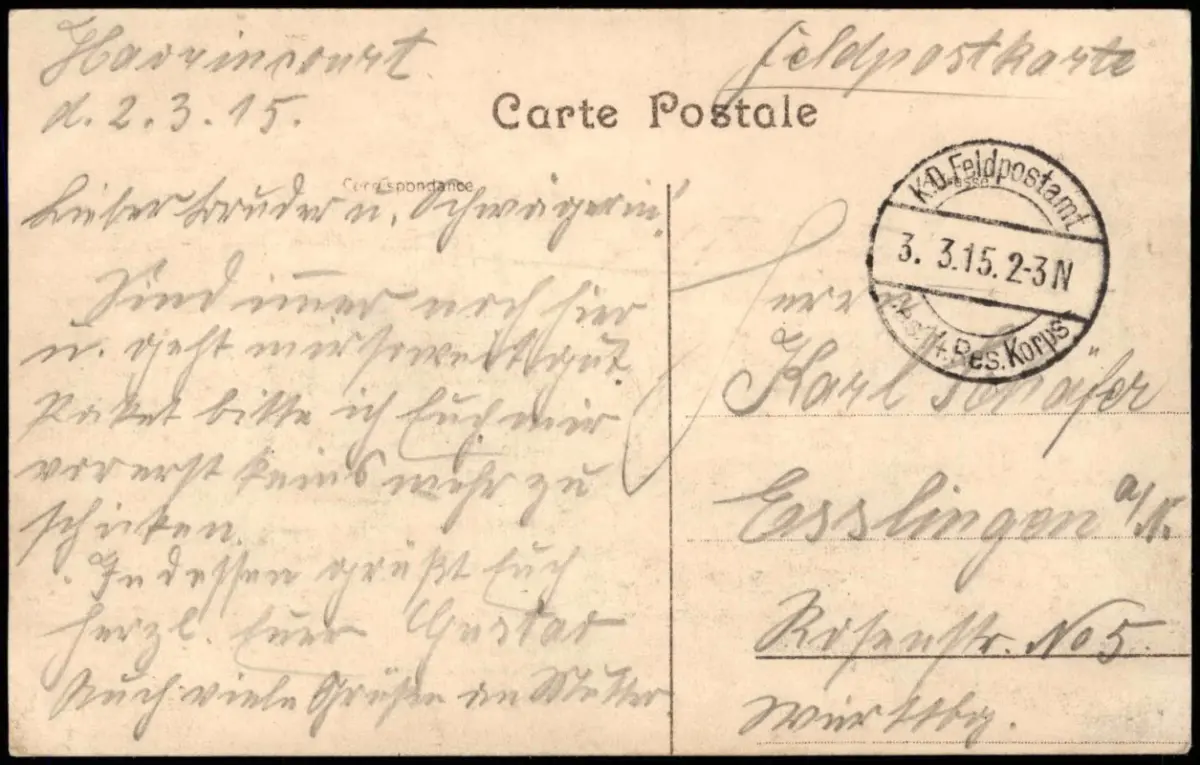 Havrincourt
d. 2.3.15.
Feldpostkarte
Carte Postale
Correspondance
Lieber Bruder u. Schwägerin!
Sind immer noch hier
u. geht mir soweit gut.
Paket bitte ich Euch mir
vorerst keins mehr zu
schicken.
In dessen grüßt Euch
herzl. Euer Gustav
Auch viele Grüße an Mutter
K.D. Feldpostamt
3. 3.15. 2-3 N
14. Res. Korps
Herrn
Karl Schäfer
Esslingen a/N.
Rosenstr. No 5.
Württbg.